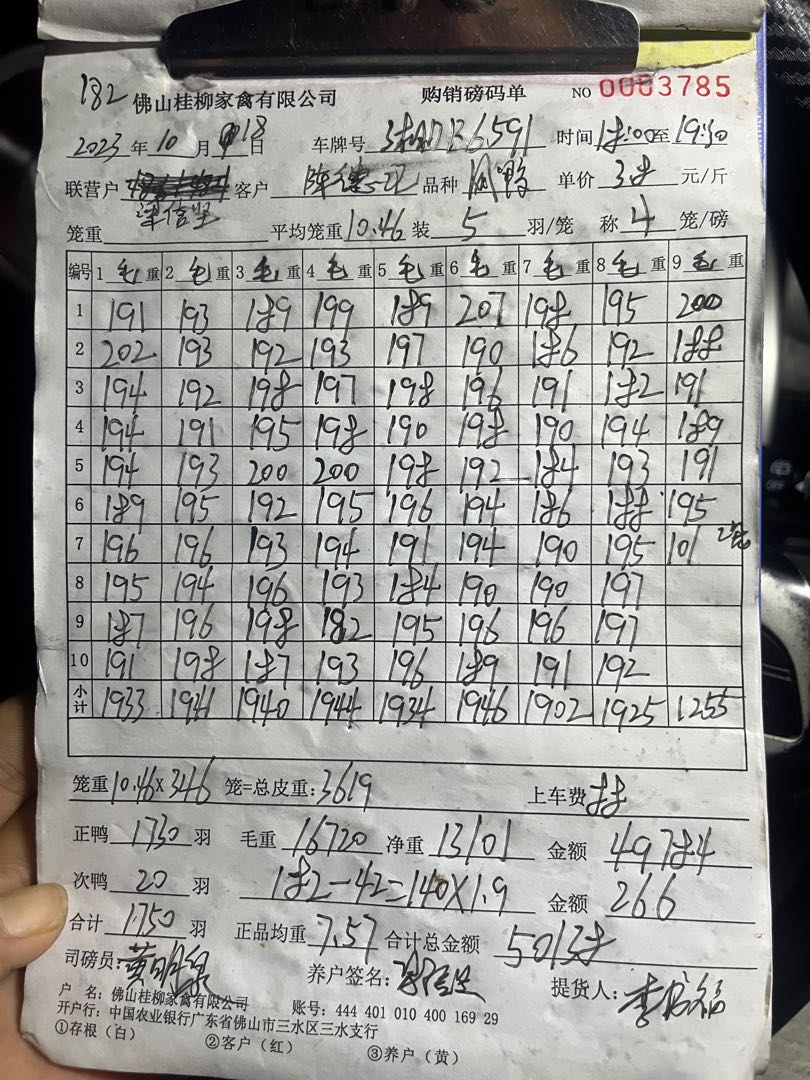 182 佛山桂柳家禽有限公司 购销磅码单 NO 0003785
2023 年 10 月 18 日 车牌号 时间 18:00 至 19:30
联营户 客户 陈德记 品种 单价 38 元/斤
笼重 平均笼重 10.46 装 5 羽/笼 称 4 笼/磅
编号 1 毛 重 2 毛 重 3 毛 重 4 毛 重 5 毛 重 6 毛 重 7 毛 重 8 毛 重 9 毛 重
1 191 193 189 199 189 207 198 195 200
2 202 193 192 193 197 190 186 192 188
3 194 192 198 197 198 196 191 182 191
4 194 191 195 198 190 198 190 194 189
5 194 193 200 200 198 192 184 193 191
6 189 195 192 195 196 194 186 188 195
7 196 196 193 194 191 194 190 195 101 2笼
8 195 194 196 193 184 190 190 197
9 187 196 198 182 195 196 196 197
10 191 198 187 193 196 189 191 192
小计 1933 1941 1940 1944 1934 1946 1902 1925 1255
笼重 10.46×346 笼=总皮重: 3619 上车费 88
正鸭 1730 羽 毛重 16720 净重 13101 金额 49784
次鸭 20 羽 182-42=140×1.9 金额 266
合计 1750 羽 正品均重 7.57 合计总金额 50138
司磅员: 养户签名: 提货人:
户 名: 佛山桂柳家禽有限公司 账号: 444 401 010 400 169 29
开户行: 中国农业银行广东省佛山市三水区三水支行
①存根（白） ②客户（红） ③养户（黄）